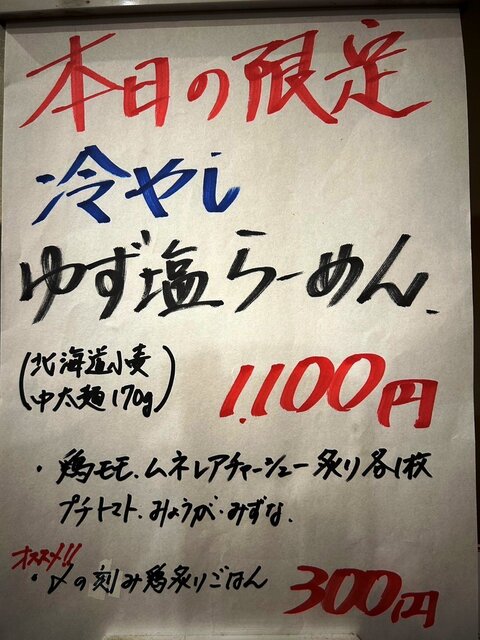 本日の限定
冷やし
ゆず塩らーめん.
(北海道小麦
中太麺170g)
1,100円
・鶏モモ、ムネレアチャーシュー炙り各1枚
プチトマト、みょうが・みずな、
オススメ!!
・〆の刻み鶏炙りごはん
300円